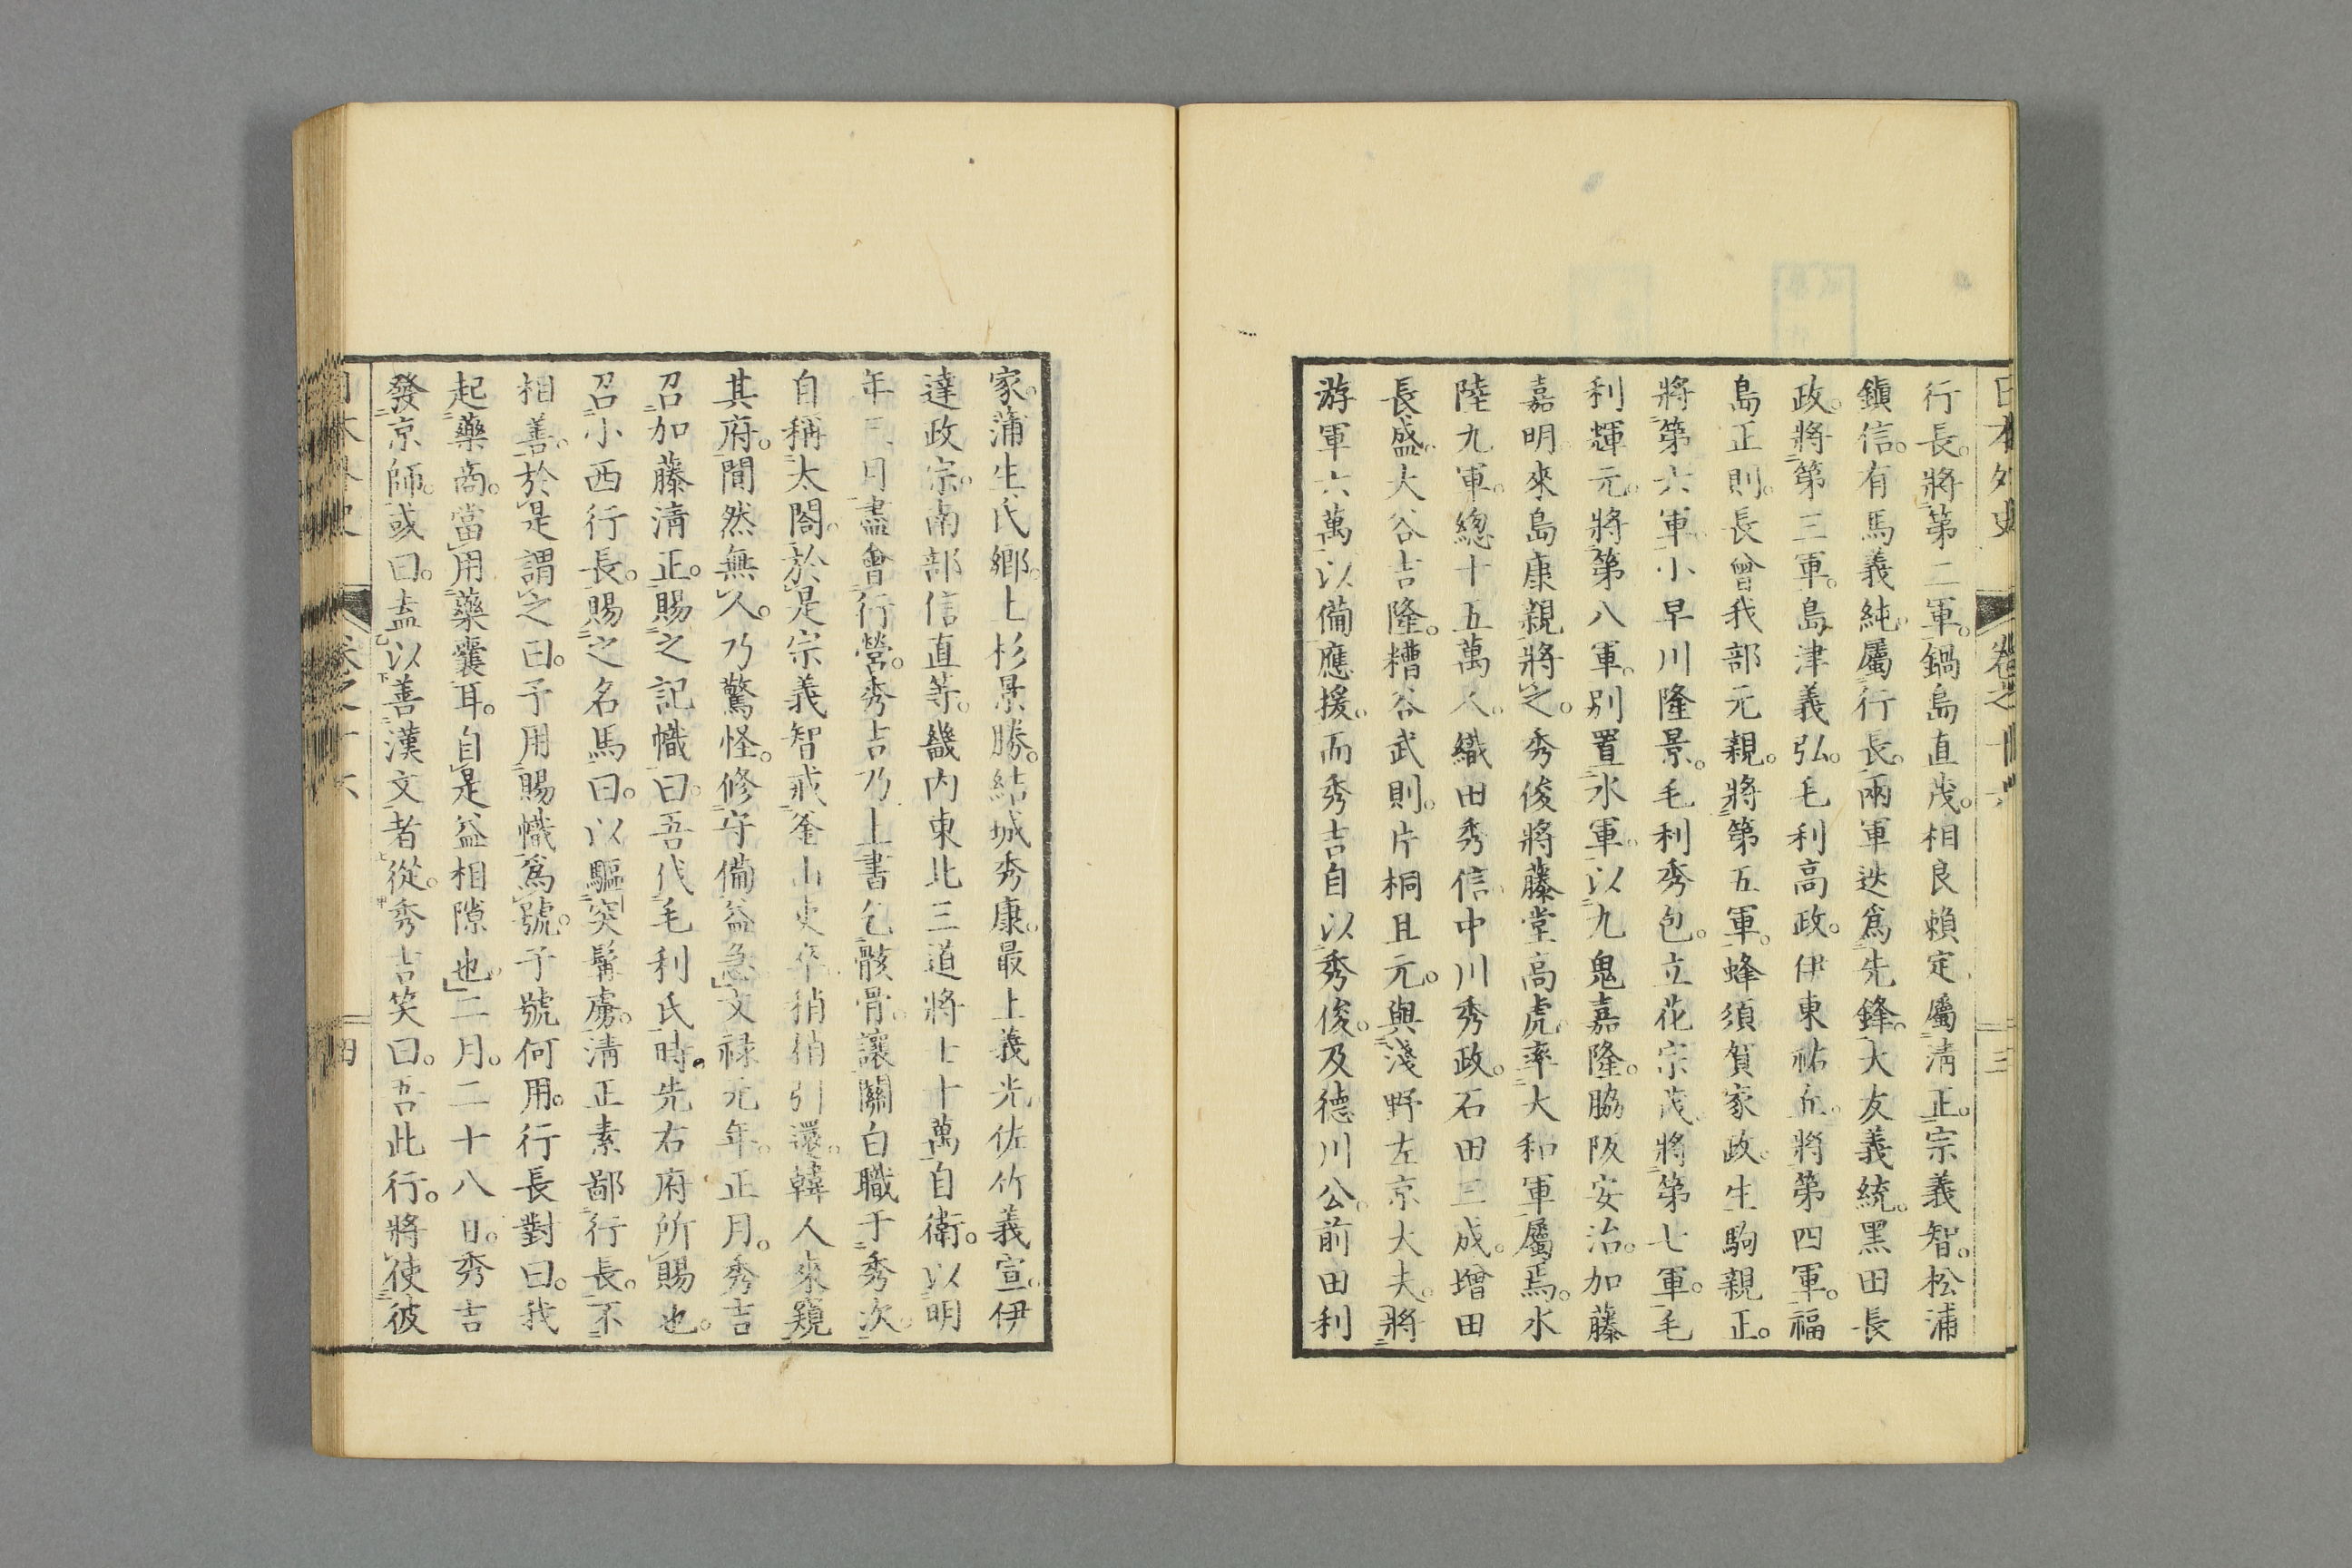 日本外史 卷之十六 三
行長。將第二軍。鍋島直茂。相良賴定屬淸正。宗義智。松浦
鎭信。有馬義純。屬行長。兩軍迭爲先鋒。大友義統。黑田長
政。將第三軍。島津義弘。毛利高政。伊東祐丘。將第四軍。福
島正則。長曾我部元親。將第五軍。蜂須賀家政。生駒親正。
將第六軍。小早川隆景。毛利秀包。立花宗茂。將第七軍。毛
利輝元。將第八軍。別置水軍。以九鬼嘉隆。脇阪安治。加藤
嘉明。來島康親將之。秀俊將藤堂高虎。率大和軍屬焉。水
陸九軍。總十五萬人。織田秀信。中川秀政。石田三成。增田
長盛。大谷吉隆。糟谷武則。片桐且元。與淺野左京大夫。將
游軍六萬以備應援。而秀吉自以秀俊。及德川公。前田利
家。蒲生氏鄕。上杉景勝。結城秀康。最上義光。佐竹義宣。伊
達政宗。南部信直等。畿內東北三道將士十萬自衛。以明
年三月盡會行營。秀吉乃上書乞骸骨。讓關白職于秀次。
自稱太閤。於是宗義智戒釜山吏卒。稍稍引還。韓人來窺
其府。閴然無人。乃驚怪。修守備益急」文祿元年。正月。秀吉
召加藤淸正。賜之記幟曰。吾代毛利氏時。先右府所賜也。
召小西行長。賜之名馬曰。以驅突髯虜。淸正素鄙行長。不
相善。於是謂之曰。予用賜幟爲號。子號何用。行長對曰。我
起藥商。當用藥囊耳。自是益相隙也」二月。二十八日。秀吉
發京師。或曰。盍以善漢文者從。秀吉笑曰。吾此行。將使彼
卷之十六 四